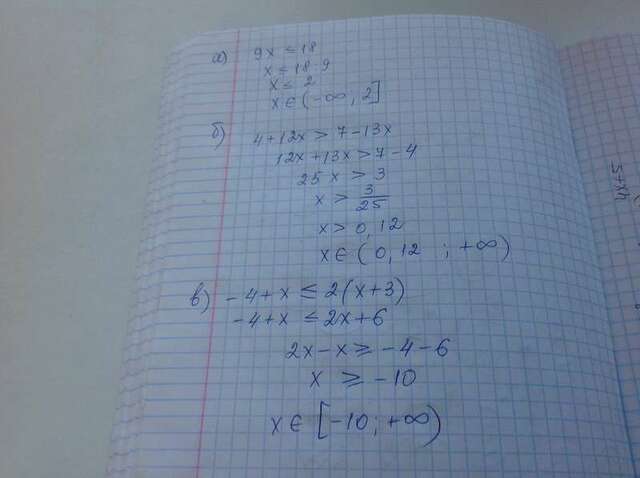 а) 9x ≤ 18
x ≤ 18:9
x ≤ 2
x ∈ (-∞, 2]
б) 4+12x > 7-13x
12x+13x > 7-4
25x > 3
x > 3/25
x > 0,12
x ∈ (0,12 ; +∞)
в) -4+x ≤ 2(x+3)
-4+x ≤ 2x+6
2x-x ≥ -4-6
x ≥ -10
x ∈ [-10; +∞)
4x+5